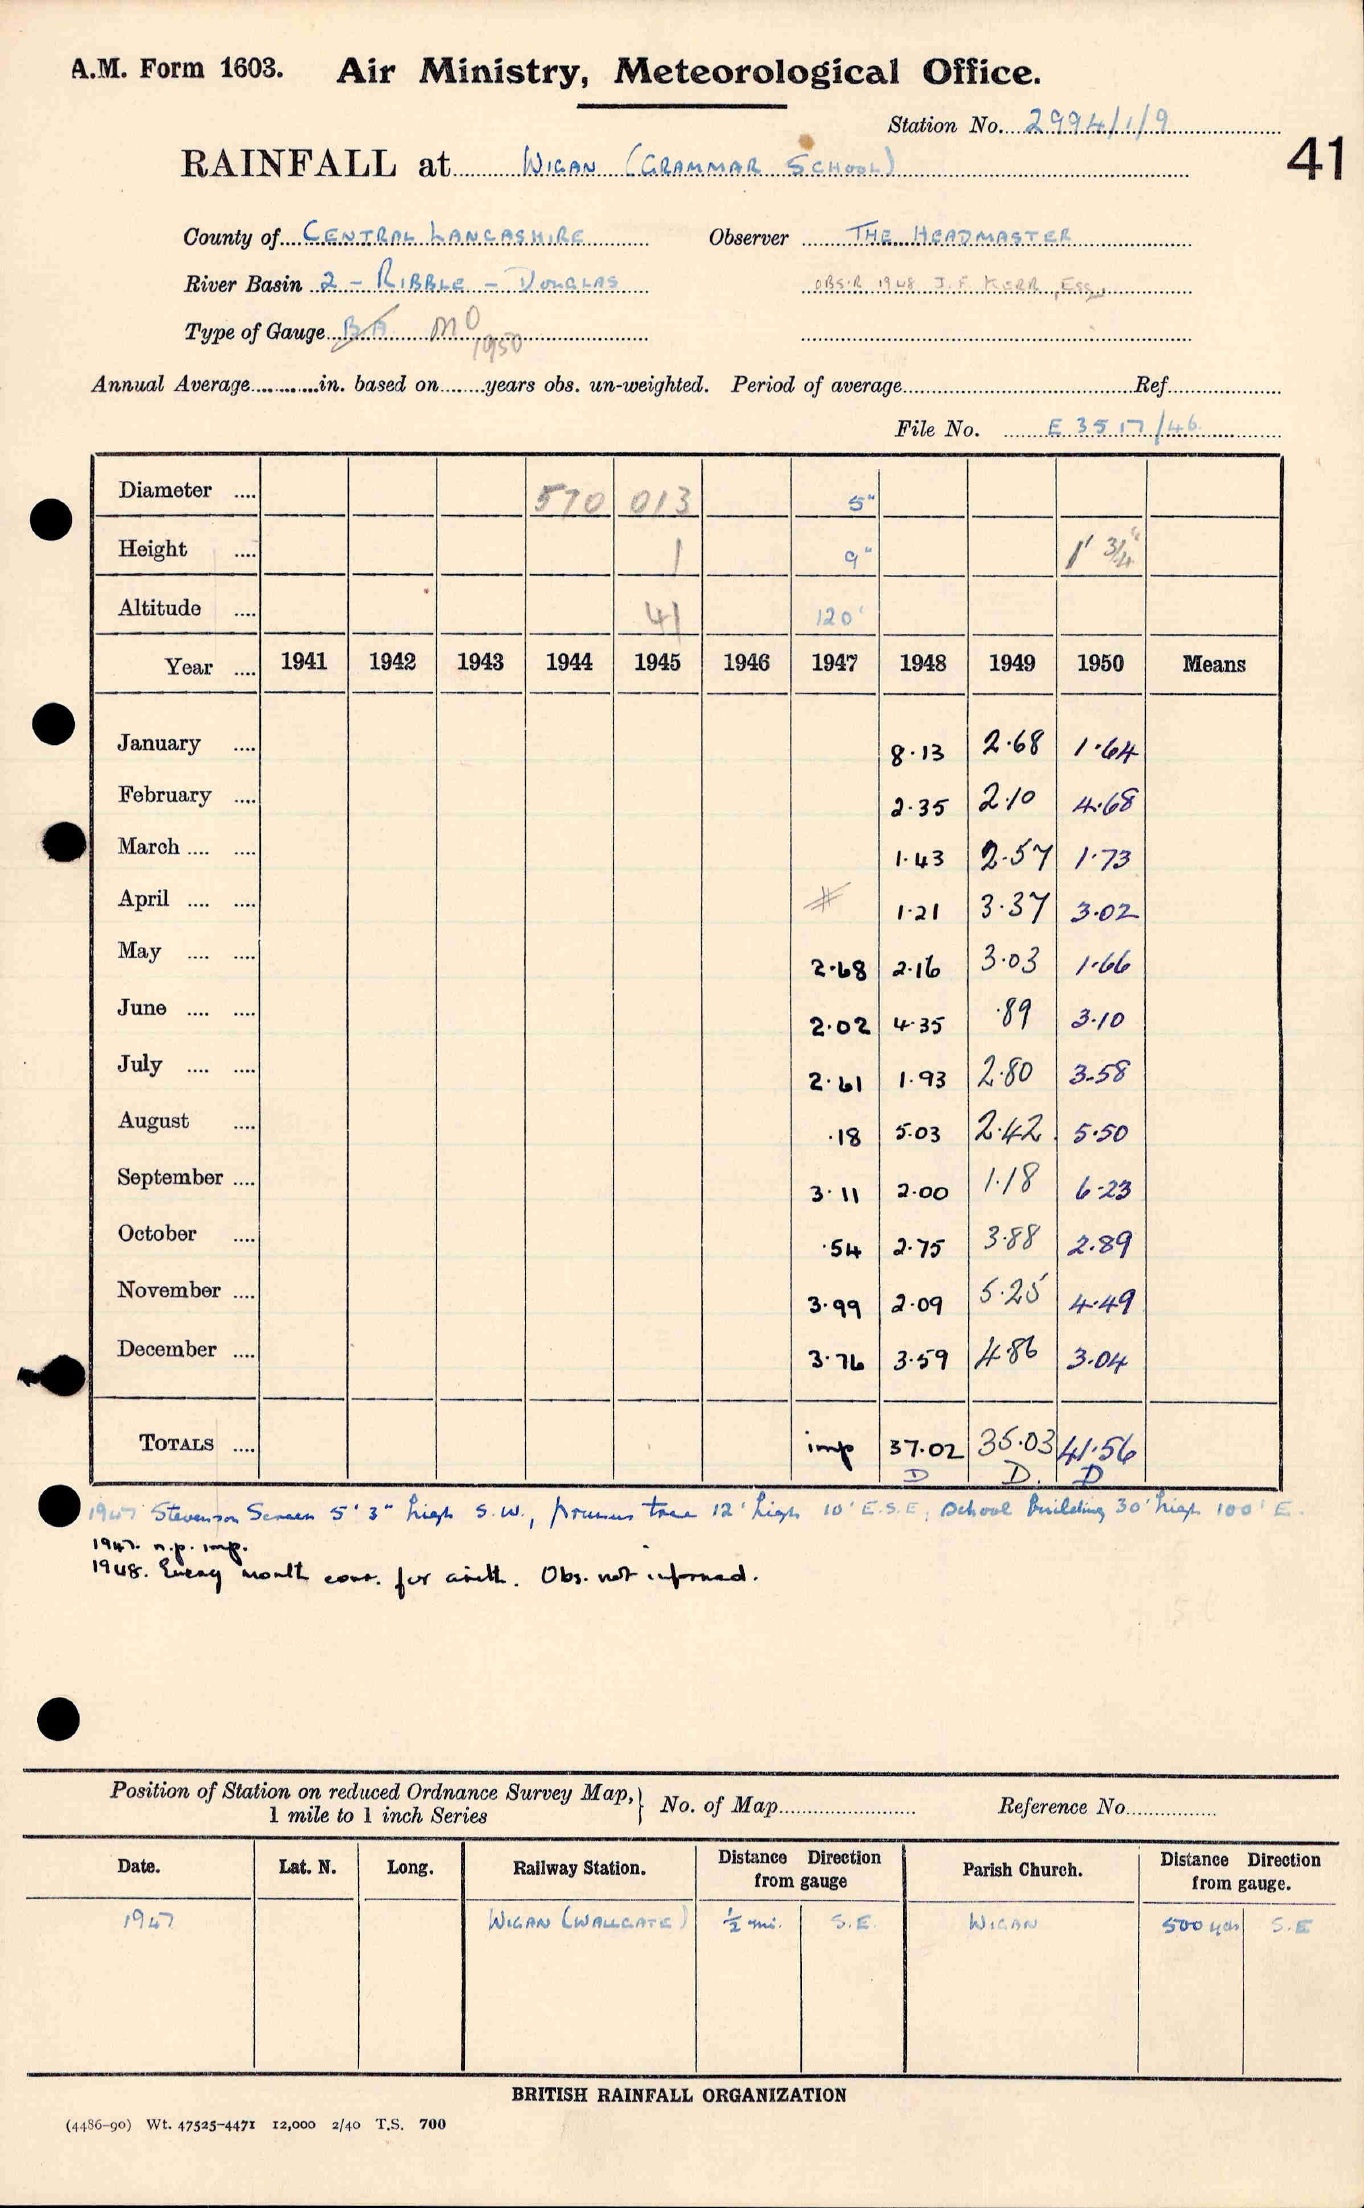 A.M. Form 1603. Air Ministry, Meteorological Office.
Station No. 2994/1/9
41
RAINFALL at WIGAN (GRAMMAR SCHOOL)
County of CENTRAL LANCASHIRE Observer THE HEADMASTER
River Basin 2 – RIBBLE – DOUGLAS OBS:R 1948 J. F. KERR, Esq.
Type of Gauge BA MO 1950
Annual Average............in. based on.......years obs. un-weighted. Period of average..........Ref..........
File No. E 3517/46
Diameter .... 570 013 5"
Height .... 1 9" 1' 3/4"
Altitude .... 41 120'
Year .... 1941 1942 1943 1944 1945 1946 1947 1948 1949 1950 Means
January .... 8.13 2.68 1.64
February .... 2.35 2.10 4.68
March .... .... 1.43 2.57 1.73
April .... .... # 1.21 3.37 3.02
May .... .... 2.68 2.16 3.03 1.66
June .... .... 2.02 4.35 .89 3.10
July .... .... 2.61 1.93 2.80 3.58
August .... .18 5.03 2.42 5.50
September .... 3.11 2.00 1.18 6.23
October .... .54 2.75 3.88 2.89
November .... 3.99 2.09 5.25 4.49
December .... 3.76 3.59 4.86 3.04
TOTALS .... imp 37.02 35.03 41.56
D D. D
1947 Stevenson Screen 5' 3" high S.W., prunus tree 12' high 10' E.S.E, School building 30' high 100' E.
1947. n.p. imp.
1948. Every month corr. for arith. Obs. not informed.
Position of Station on reduced Ordnance Survey Map,} No. of Map.......... Reference No..........
1 mile to 1 inch Series
Date. Lat. N. Long. Railway Station. Distance from gauge Direction Parish Church. Distance from gauge. Direction
1947 WIGAN (WALLGATE) ½ mi. S.E. WIGAN 500 yds S.E
BRITISH RAINFALL ORGANIZATION
(4486-90) Wt. 47525-4471 12,000 2/40 T.S. 700